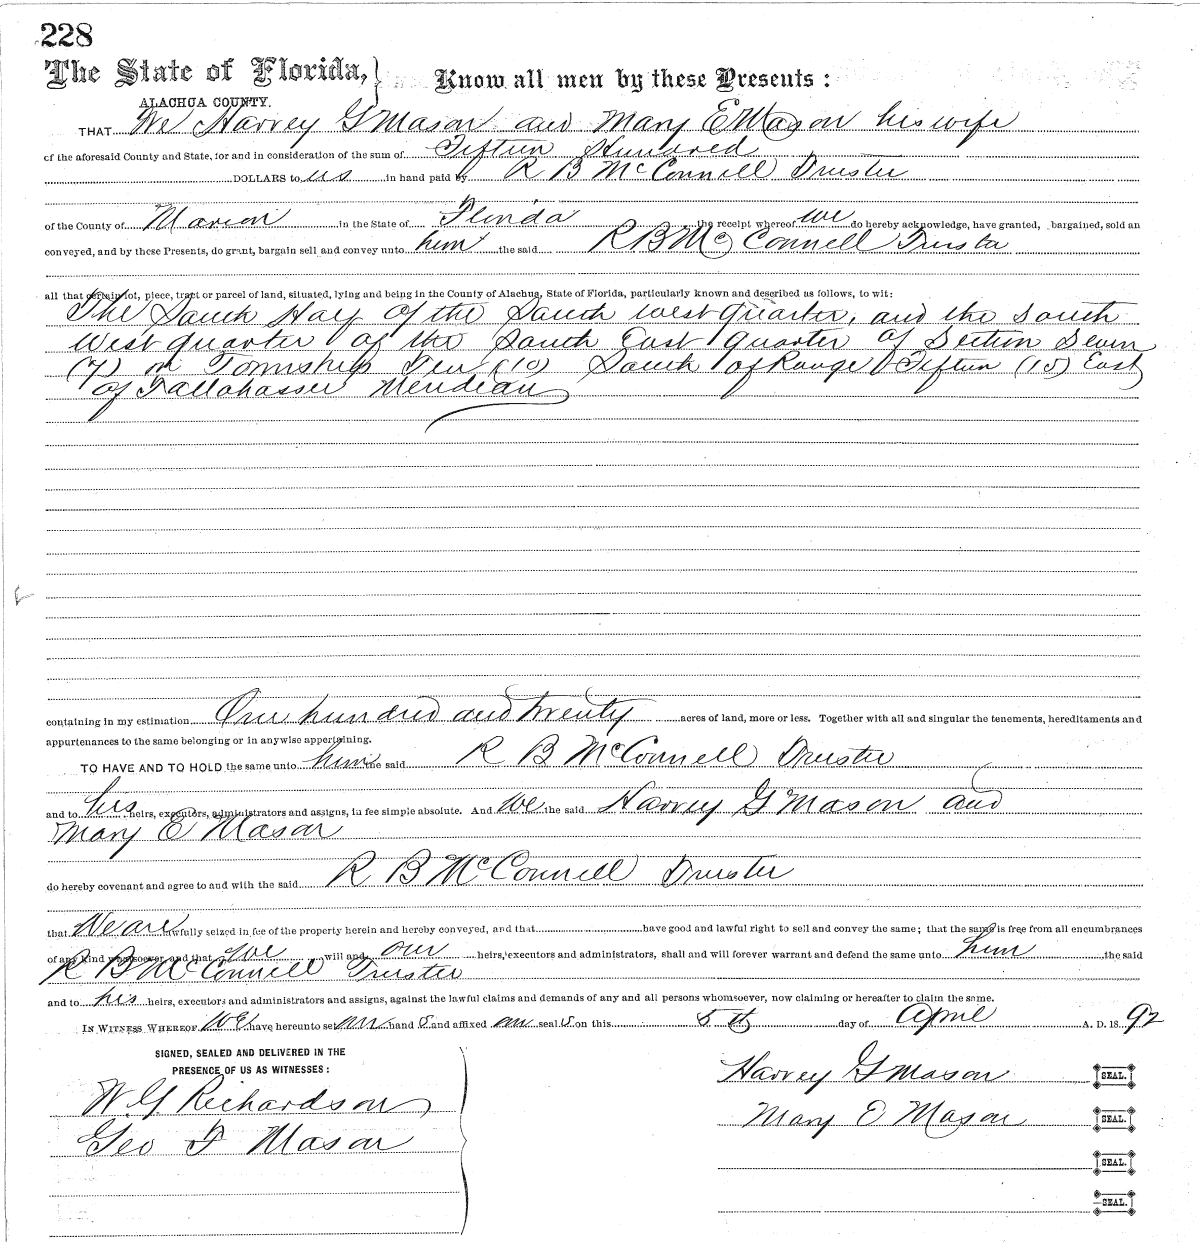 228
The State of Florida, } Know all men by these Presents :
ALACHUA COUNTY.
THAT We Harvey G Mason and Mary E Mason his wife
of the aforesaid County and State, for and in consideration of the sum of Fifteen Hundred
DOLLARS to us in hand paid by R B McConnell Trustee
of the County of Marion in the State of Florida the receipt whereof we do hereby acknowledge, have granted, bargained, sold an
conveyed, and by these Presents, do grant, bargain sell and convey unto him the said R B McConnell Trustee
all that certain lot, piece, tract or parcel of land, situated, lying and being in the County of Alachua, State of Florida, particularly known and described as follows, to wit:
The South Half of the South West quarter, and the South
West quarter of the South East quarter of Section Seven
(7) in Township Ten (10) South of Range Fifteen (15) East
of Tallahassee Meridian
containing in my estimation One hundred and twenty acres of land, more or less. Together with all and singular the tenements, hereditaments and
appurtenances to the same belonging or in anywise appertaining.
TO HAVE AND TO HOLD the same unto him the said R B McConnell Trustee
and to his heirs, executors, administrators and assigns, in fee simple absolute. And We the said Harvey G Mason and
Mary E Mason
do hereby covenant and agree to and with the said R B McConnell Trustee
that We are lawfully seized in fee of the property herein and hereby conveyed, and that have good and lawful right to sell and convey the same; that the same is free from all encumbrances
of any kind whatsoever, and that we will and our heirs, executors and administrators, shall and will forever warrant and defend the same unto him the said
R B McConnell Trustee
and to his heirs, executors and administrators and assigns, against the lawful claims and demands of any and all persons whomsoever, now claiming or hereafter to claim the same.
IN WITNESS WHEREOF We have hereunto set our hand s and affixed our seal s on this 5th day of April A. D. 18 92
SIGNED, SEALED AND DELIVERED IN THE
PRESENCE OF US AS WITNESSES :
Harvey G Mason SEAL.
W. G. Richardson
Mary E Mason SEAL.
Geo F Mason
SEAL.
SEAL.